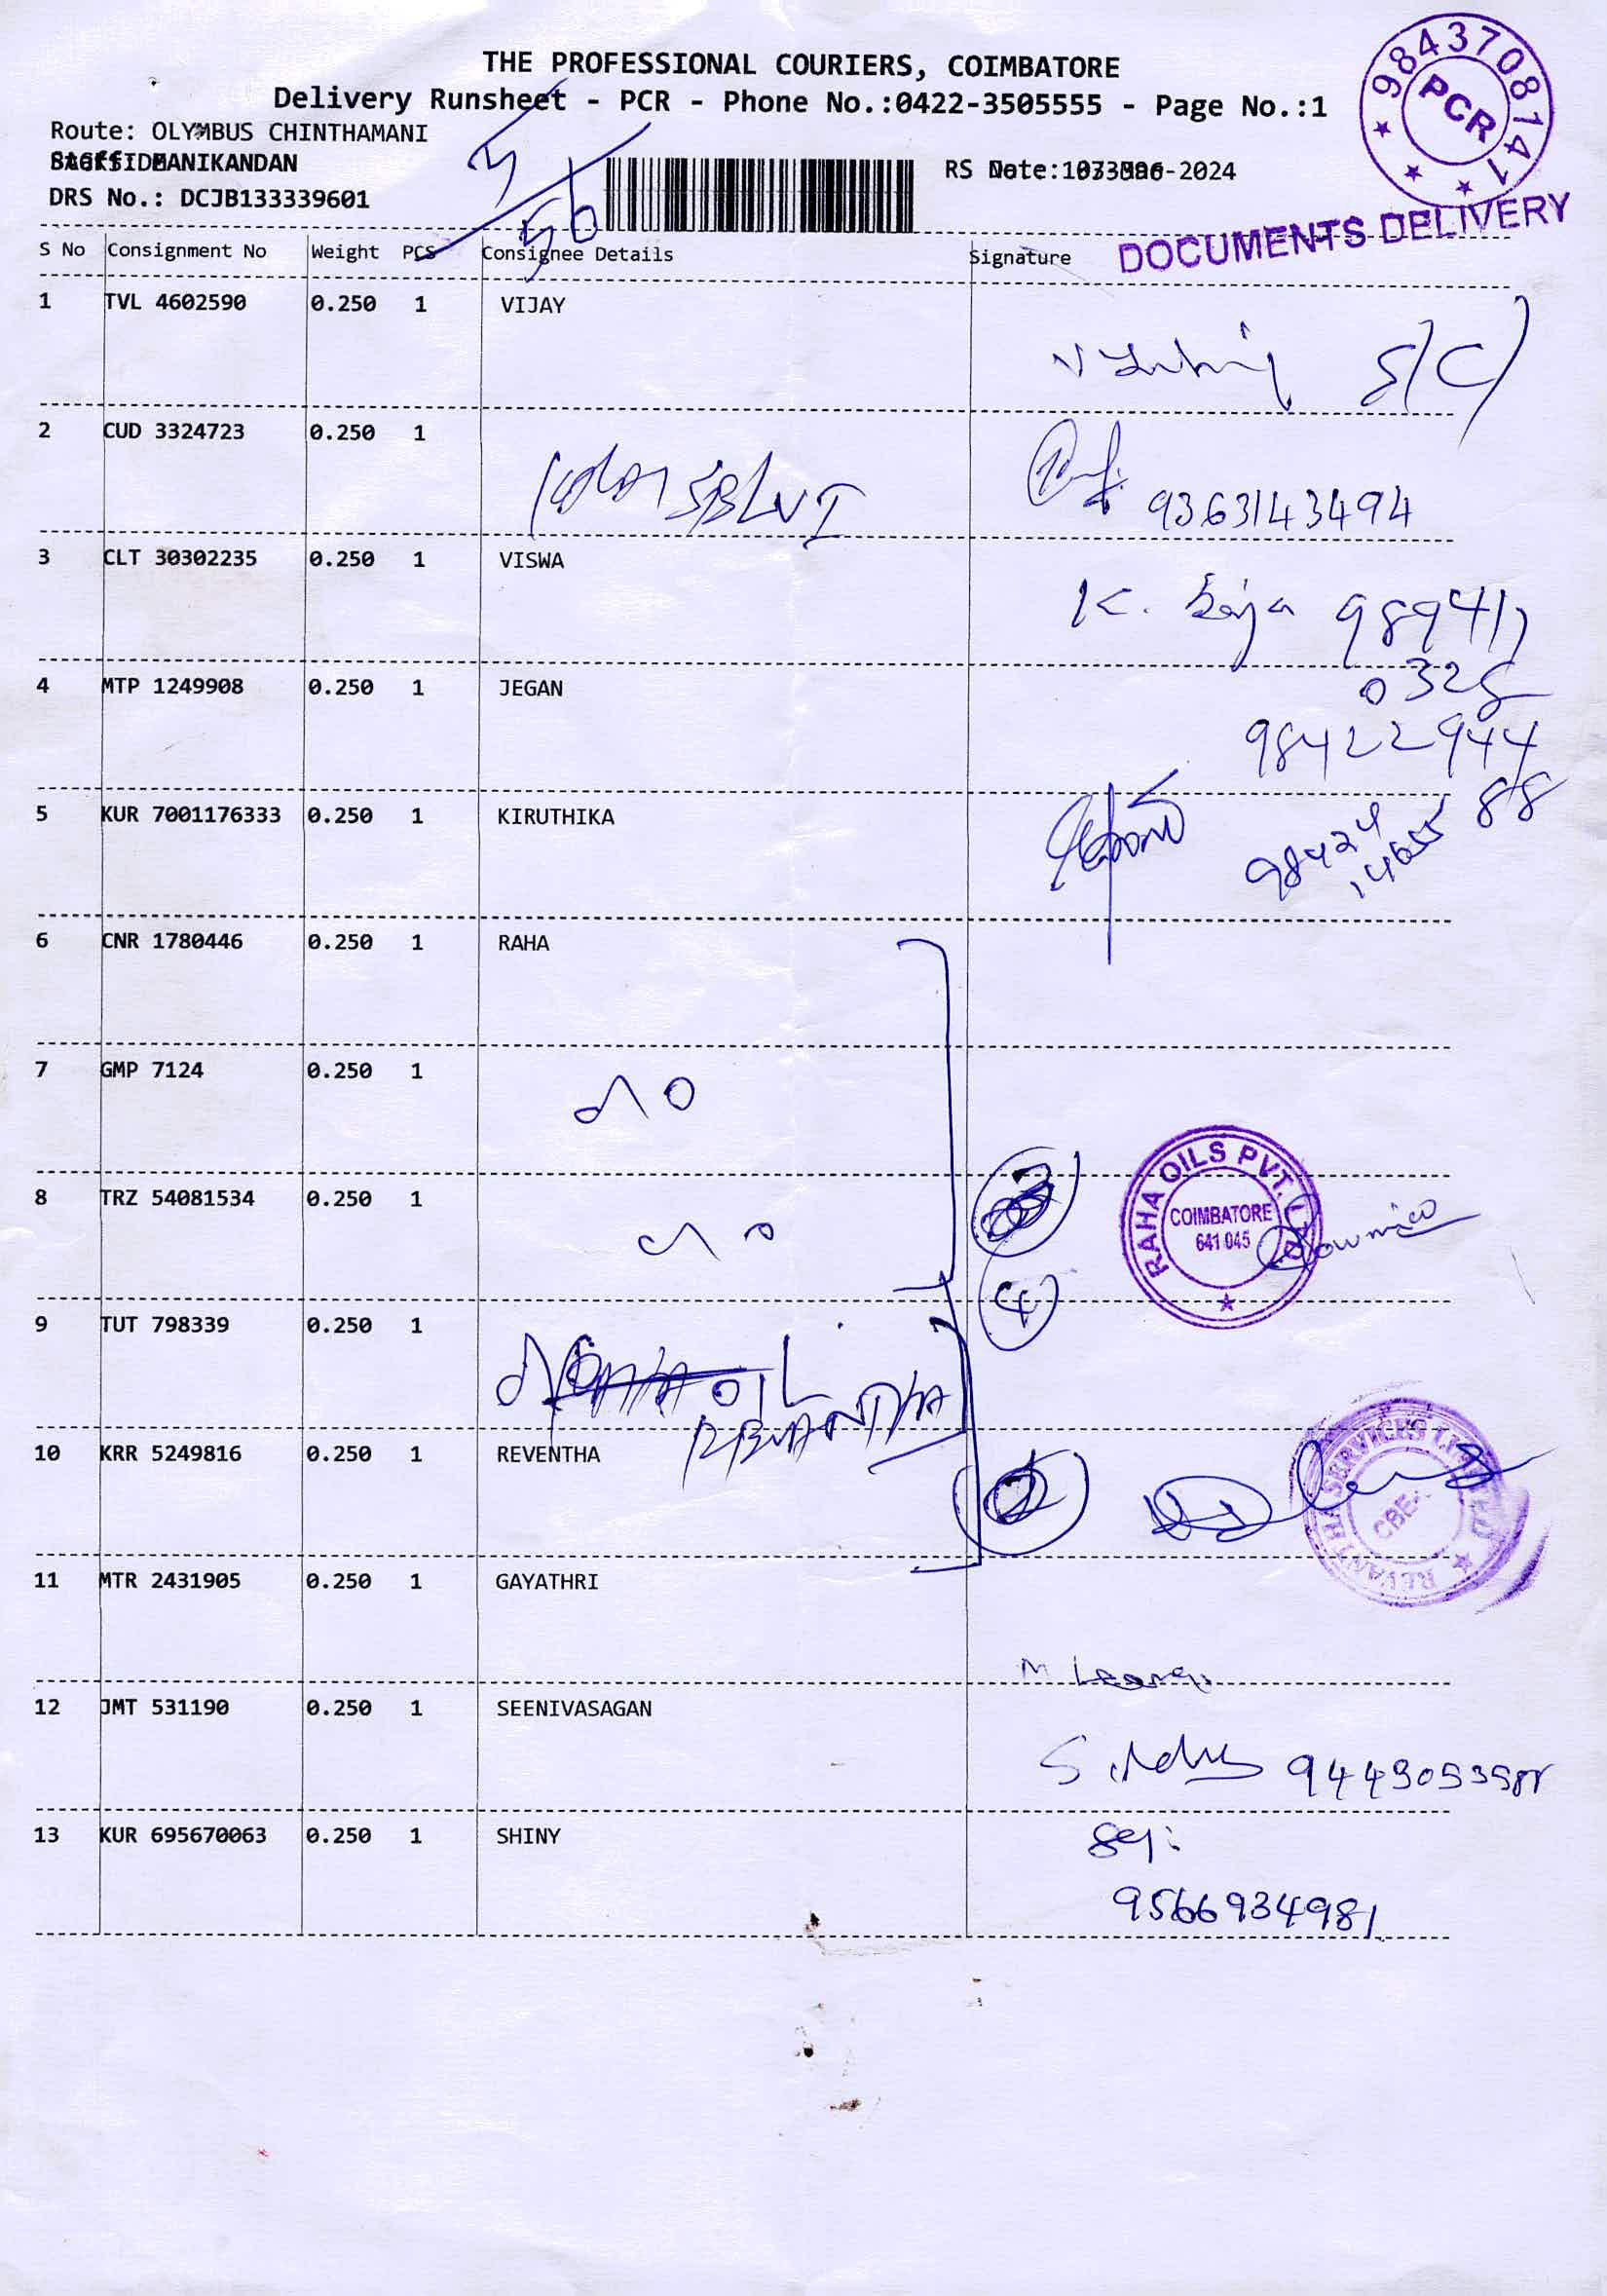 THE PROFESSIONAL COURIERS, COIMBATORE
Delivery Runsheet - PCR - Phone No.:0422-3505555 - Page No.:1
9843708141
PCR
Route: OLYMBUS CHINTHAMANI
MANIKANDAN
RS Date: -2024
DRS No.: DCJB133339601
56
DOCUMENTS DELIVERY
S No Consignment No Weight PCS Consignee Details Signature
1 TVL 4602590 0.250 1 VIJAY
S/C
2 CUD 3324723 0.250 1
9363143494
3 CLT 30302235 0.250 1 VISWA
K. Raja 98941
0325
4 MTP 1249908 0.250 1 JEGAN
98422944
88
5 KUR 7001176333 0.250 1 KIRUTHIKA
98424
14655
6 CNR 1780446 0.250 1 RAHA
7 GMP 7124 0.250 1
8 TRZ 54081534 0.250 1
3
RAHA OILS PVT. LTD
COIMBATORE
641 045
Sowmiya
4
9 TUT 798339 0.250 1
OIL
REVANTHA
10 KRR 5249816 0.250 1 REVENTHA
2
REVANTHA SERVICES LIMITED
CBE-
11 MTR 2431905 0.250 1 GAYATHRI
M
12 JMT 531190 0.250 1 SEENIVASAGAN
S. 
13 KUR 695670063 0.250 1 SHINY
9566934981